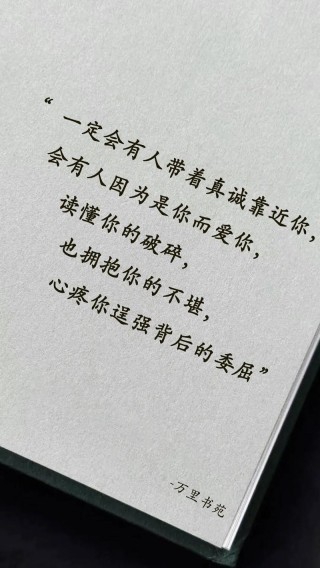 “一定会有人带着真诚靠近你，
会有人因为是你而爱你，
读懂你的破碎，
也拥抱你的不堪，
心疼你逞强背后的委屈”
-万里书苑